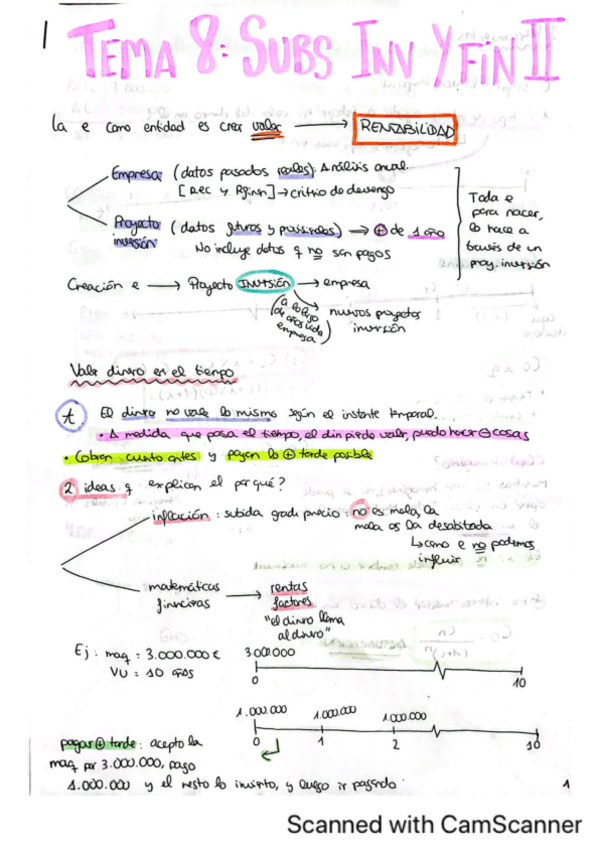 1
TEMA 8: SUBS INV Y FIN II
La e como entidad es crear valor → RENTABILIDAD
Empresa (datos pasados reales): Análisis anual.
[REC y Rginn] → critrio de devengo
Proyecto inversión (datos futuros y previsibles) → ⊕ de 1 año
No incluye datos q no son pagos
Toda e
para nacer,
lo hace a
través de un
proy. inversión
Creación e → Proyecto INVERSIÓN → empresa
(a lo largo
de años vida
empresa)
nuevos proyectos
inversión
Valor dinero en el tiempo
t. El dinero no vale lo mismo según el instante temporal.
• A medida que pasa el tiempo, el din pierde valor, puedo hacer ⊖ cosas
• Cobrar cuanto antes y pagar lo ⊕ tarde posible
2 ideas q explican el por qué?
inflación : subida grads precio : no es mala, la
mala es la desorbitada
↳ como e no podemos
influir
matemáticas
financieras
→ rentas
factores
"el dinero llama
al dinero"
Ej: maq = 3.000.000 €
VU = 10 años
3.000.000
0
10
1.000.000
1.000.000
1.000.000
0
1
2
10
pagar ⊕ tarde: acepto la
maq por 3.000.000, pago
1.000.000 y el resto lo invierto, y luego ir pagando
1
Scanned with CamScanner